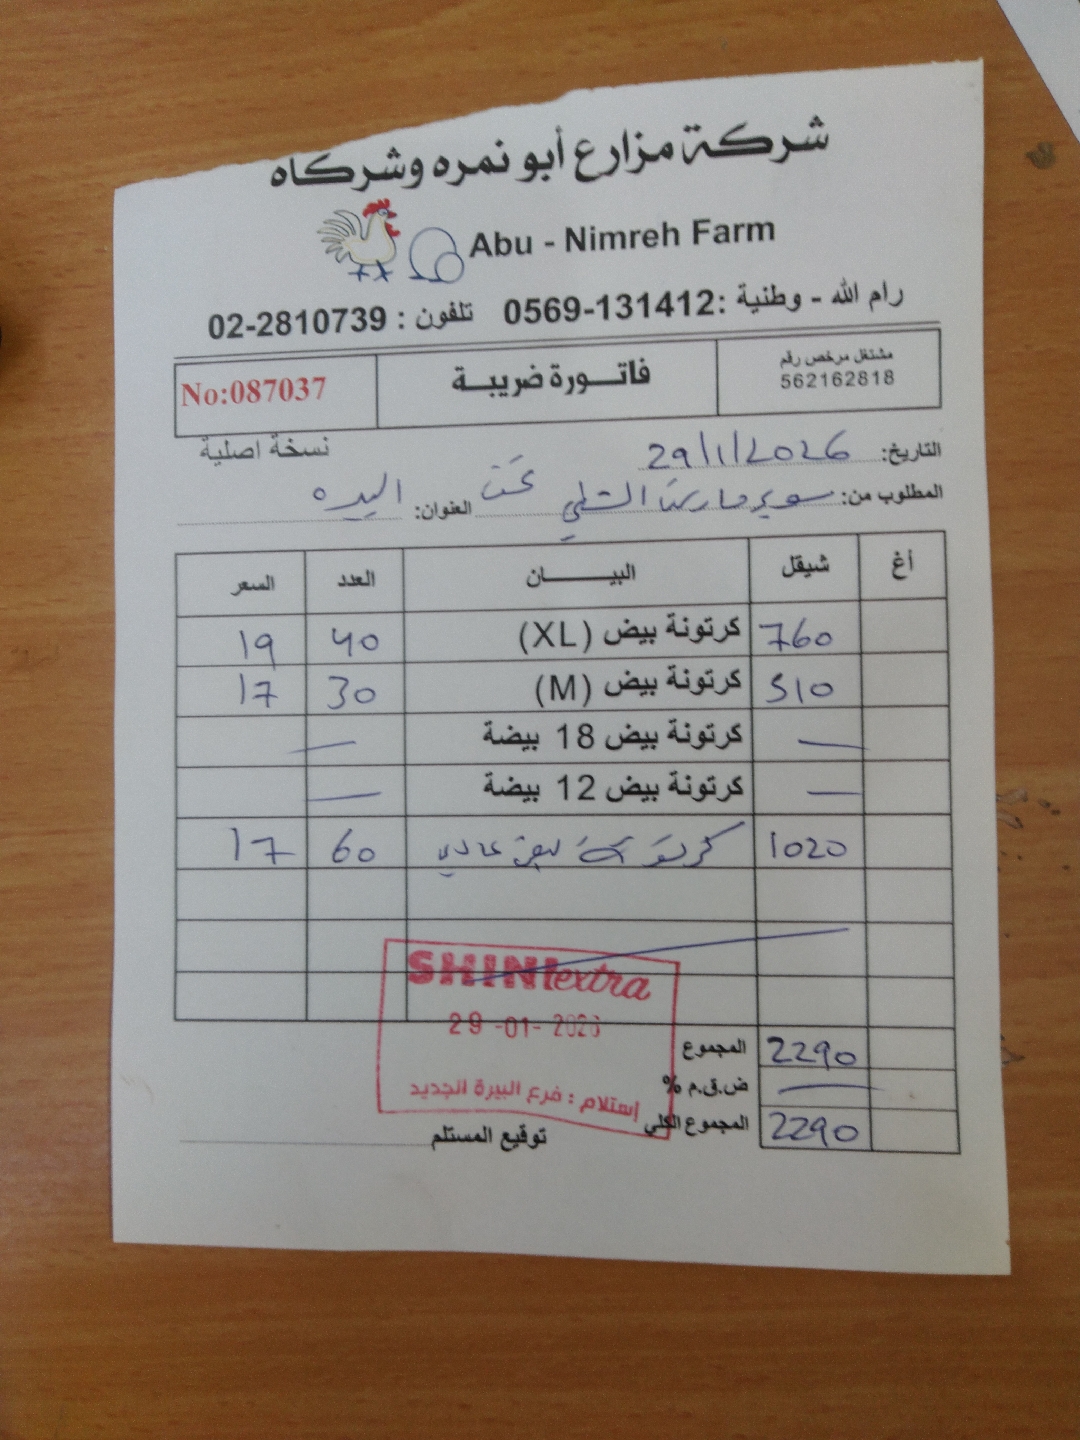 شركة مزارع أبو نمره وشركاه
Abu - Nimreh Farm
رام الله - وطنية : 0569-131412 تلفون : 02-2810739
مشتغل مرخص رقم
562162818
فاتـورة ضريبـة
No:087037
نسخة اصلية
التاريخ: 29/1/2026
المطلوب من: سوبر ماركت الشلبي العنوان: البيره
أغ شيقل البيـــان العدد السعر
760 كرتونة بيض (XL) 40 19
510 كرتونة بيض (M) 30 17
— كرتونة بيض 18 بيضة —
— كرتونة بيض 12 بيضة —
1020 كرتونة بيض عادي 60 17
SHINI extra
29-01-2026
إستلام : فرع البيرة الجديد
المجموع 2290
ض.ق.م % —
المجموع الكلي 2290
توقيع المستلم